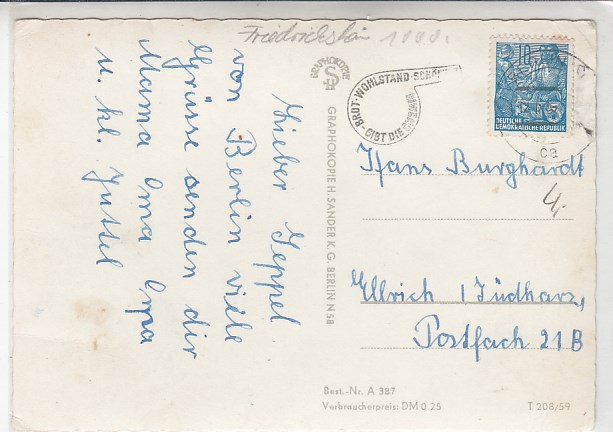 Lieber Seppel
von Berlin viele
Grüsse senden dir
Mama Oma Opa
u. kl. Jussel
GRAPHOKOPIE
GRAPHOKOPIE H. SANDER K.G. BERLIN N 58
BROT-WOHLSTAND-SCHÖN
GIBT DIE
10
DEUTSCHE
DEMOKRATISCHE REPUBLIK
ca
Hans Burghardt
4,-
Ellrich / Südharz,
Postfach 21 B
Best.-Nr. A 387
Verbraucherpreis: DM 0.25
T 208/59